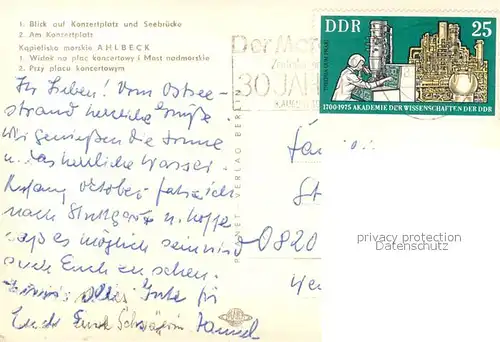 1. Blick auf Konzertplatz und Seebrücke
2. Am Konzertplatz
Kąpielisko morskie AHLBECK
1. Widok na plac koncertowy i Most nadmorskie
2. Przy placu koncertowym
Ihr Lieben! Vom Ostsee-
strand herzliche Grüße.
Wir genießen die Sonne
u. das herrliche Wasser.
Anfang Oktober fahre ich
nach Stuttgart u. hoffe
daß es möglich sein wird
auch Euch zu sehen.
alles Gute für
Euch Eure Schwägerin
PLANET-VERLAG BERLIN
Der
30 JAH
DDR 25
1700-1975 AKADEMIE DER WISSENSCHAFTEN DER DDR
0820
privacy protection
Datenschutz